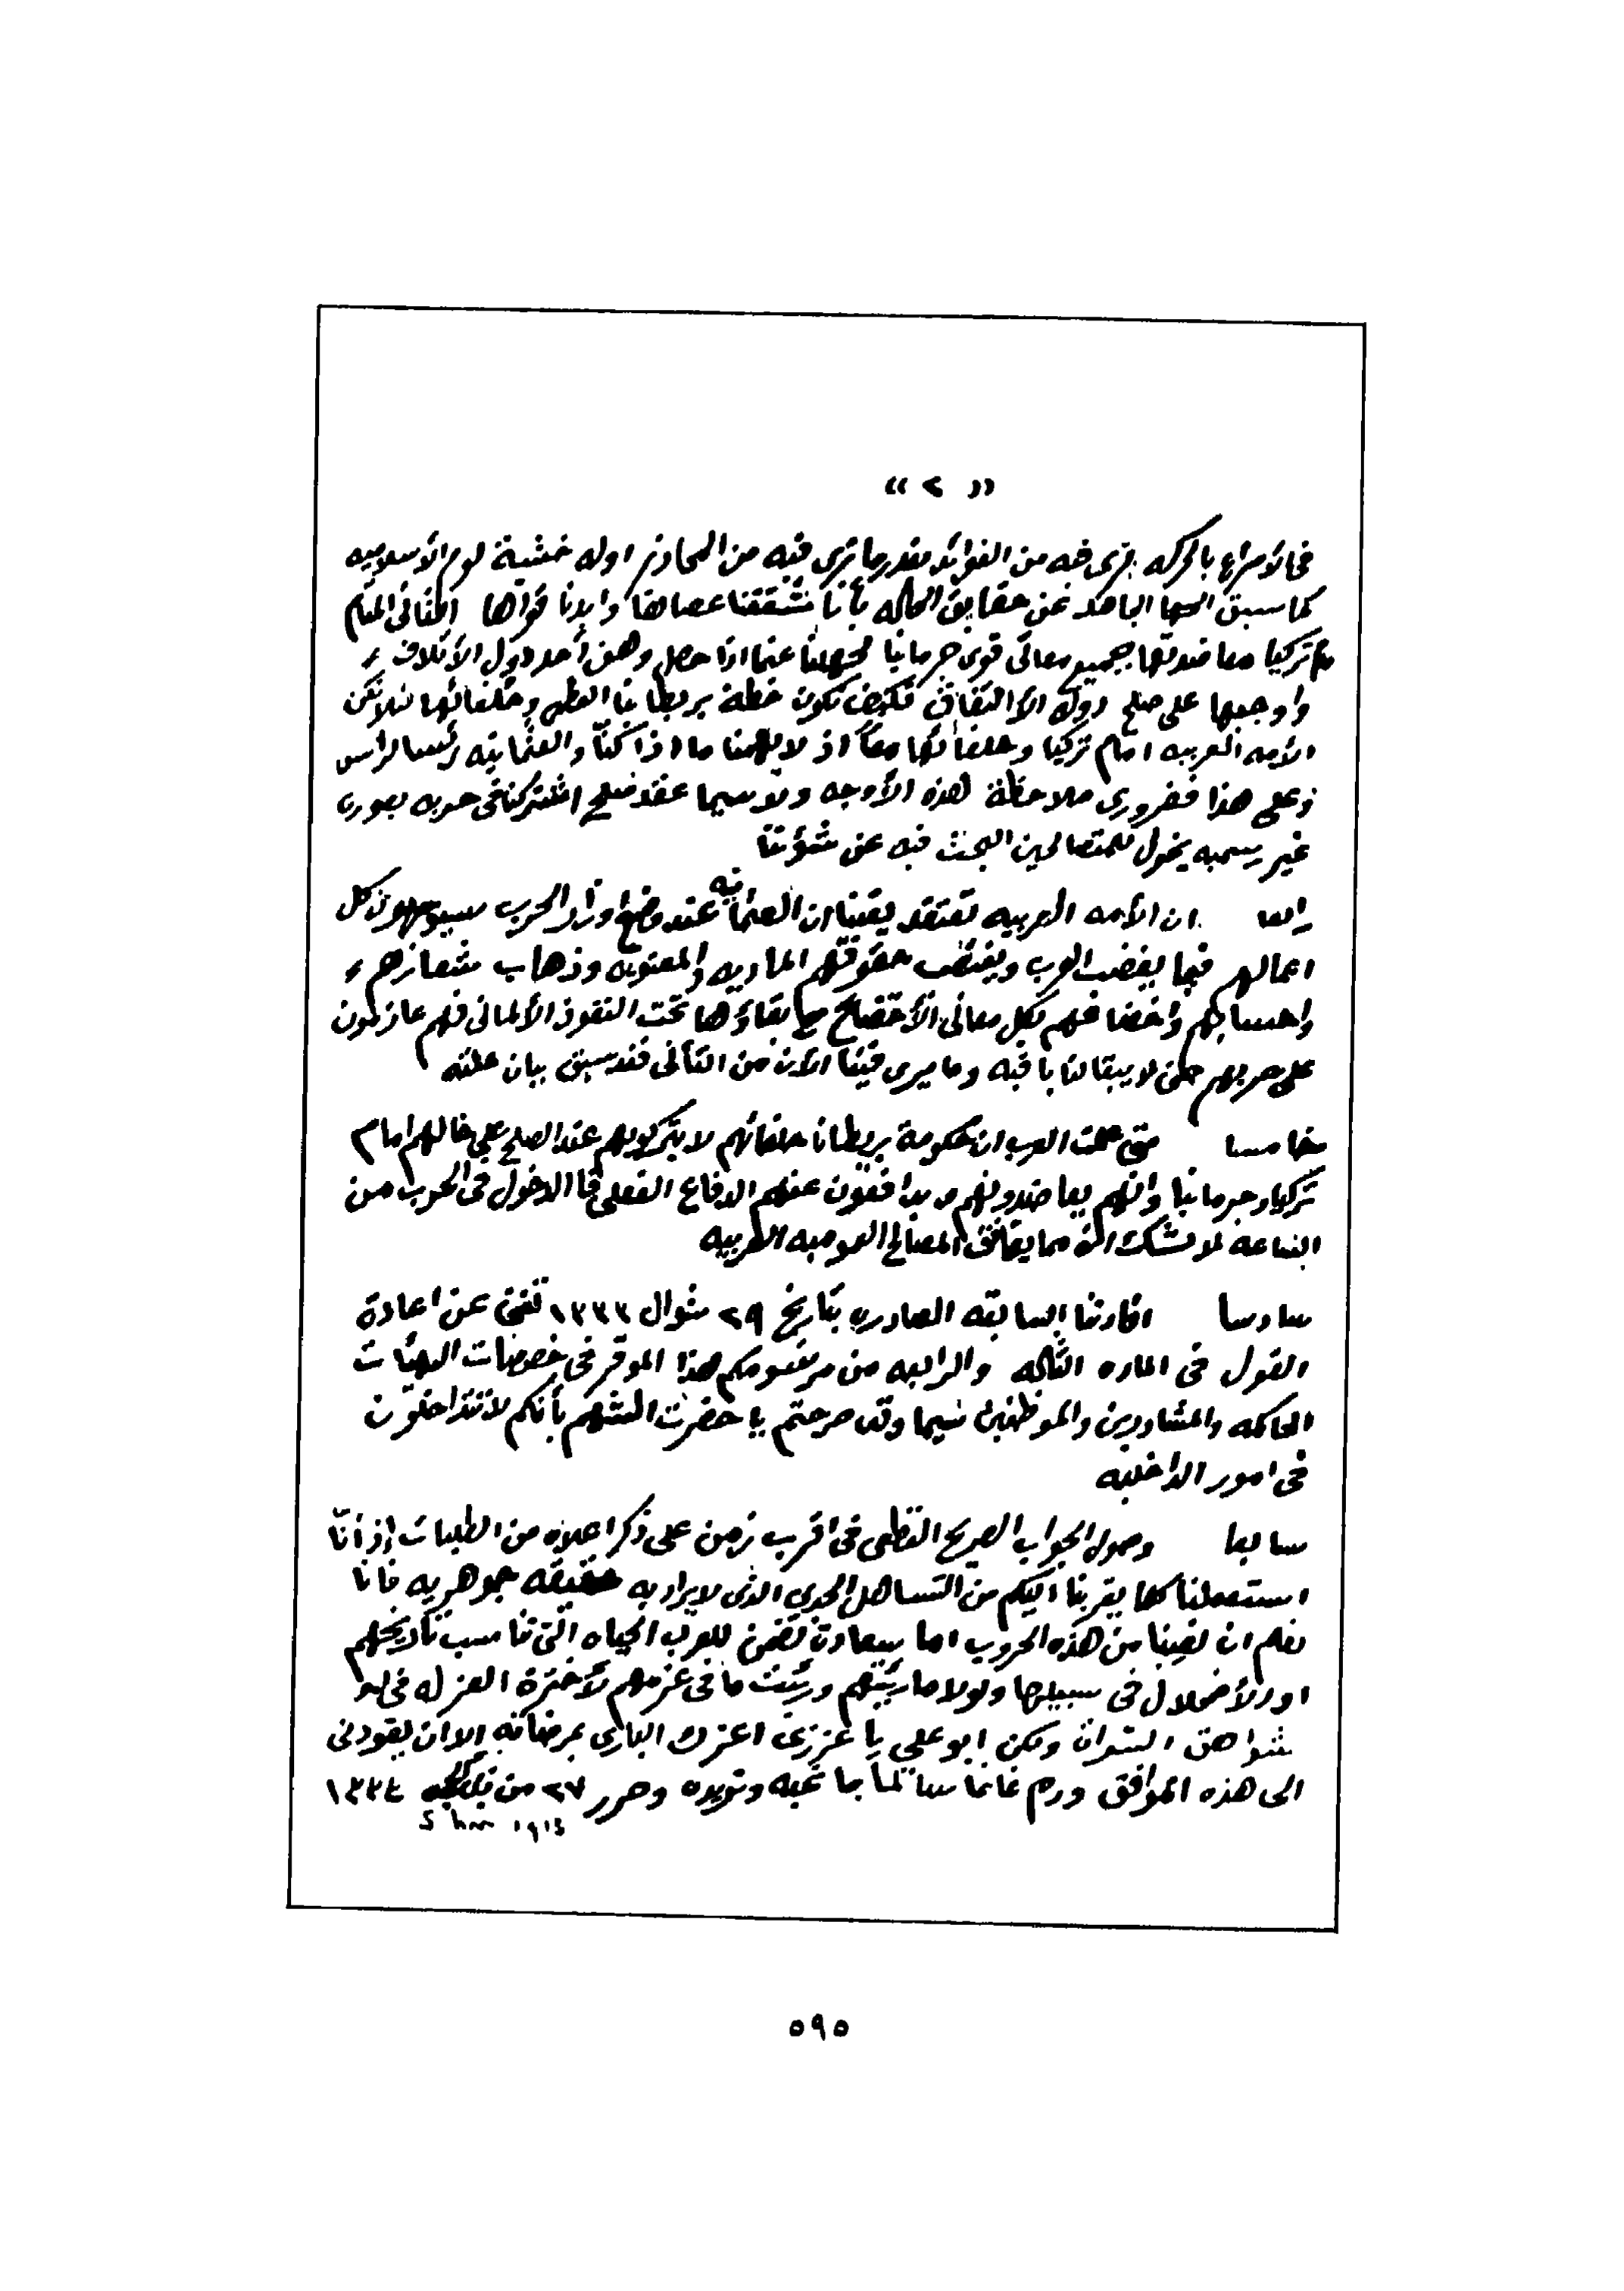 « ٢ »
فالاسراع بالحركه نرى فيه من الفوائد بقدر ما نرى فيه من المحاذر اوله خشية لوم الأسلاميه
كما سبق الجاهله عن حقايق الحاله بأنا شققنا عصاها وابدنا قواها الثانى المقام
مع تركيا معاضدتها بجميع معانى قوى جرمانيا لجهلنا عما اذا حصل وهن أحد دول الأئتلاف
واوجبها على صلح دول الاتفاق فكيف تكون خطة بريطانيا العظمى وحلفائها لئلا تكن
الأمه العربيه امام تركيا وحلفائها معاً اذ لا يهمنا ما اذا كنا والعثمانيه رئيسا لرأس
وعلى هذا فضرورى ملاحظة لهذه الأوجه ولا سيما عقد صلح اشتركنا فى حربه بصوره
غير رسميه يخول للمتصالحين البحث فيه عن شؤننا
رابعا ان الأمه العربيه تعتقد يقينا ان العثمانيه عند وضع اوزار الحرب سيوجهون كل
اعمالهم فيما يغضب العرب ويغتصب حقوقهم الماديه والمعنويه وذهاب شعائرهم
واحسابهم واخضاعهم بكل معانى الأخضاع مع بقاؤها تحت النفوذ الألمانى فهم عازمون
على حربهم حتى لا يبقا لنا باقيه وما يرى فينا الان من التأنى فقد سبق بيان علته
خامسا متى علمت العرب ان حكومة بريطانيا حلفائهم لا يتركونهم عند الصلح على حالهم امام
تركيا وجرمانيا وانهم يعاضدونهم ويدافعون عنهم الدفاع الفعلى فا الدخول فى الحرب من
الساعه لا شك انه مما يوافق المصالح العموميه العربيه
سادسا افادتنا السابقه الصادره بتاريخ ٢٩ شوال ١٣٣٣ تغنى عن اعادة
القول فى الماده الثالثه والرابعه من مرسومكم هذا الموقر فى خصوصات الهيئات
الحاكمه والمشاورين والموظفين سيما وقد صرحتم يا حضرت الشهم بأنكم لا تتداخلون
فى امور الداخليه
سابعا وصول الجواب الصريح القطعى فى اقرب زمن على ذكر اعلاه من الطلبات إذ أنّا
استعملنا كلما يقربنا اليكم من التساهل الجدى الذى لا يراد به حقيقه جوهريه فانا
نعلم ان نصيبنا من هذه الحروب اما سعادة تضمن للعرب الحياه التى تناسب تأريخهم
او الأضمحلال فى سبيلها ولولا ما رئيتهم ورئيت ما فى عزمهم لأخترة العزله فى
شواهق ولكن ابو على يا عزيزى اعزك البارى بمرضاته الا ان يقودنى
الى هذه المواقق ودم غانما سالماً بما تحبه وتريده وحرر ٢٧ من ١٣٣٤
٥٩٥